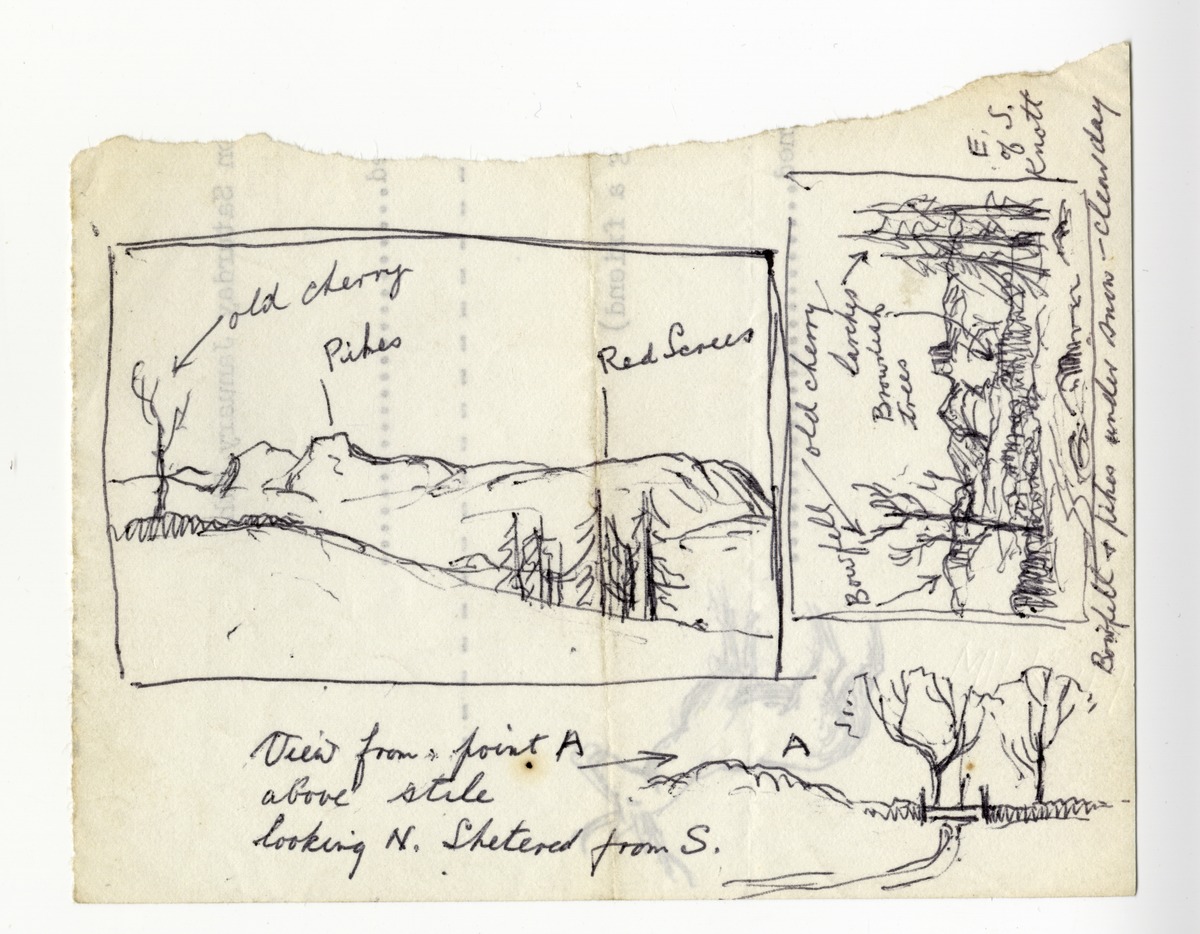 old cherry
Pikes
Red Screes
View from point A
above stile
looking N. Shetered from S.
A
E.
of S.
Knott
larches
Brownish
trees
old cherry
Bowfell
Bowfell + pikes under snow - clear day
on Saturday January
s a friend)